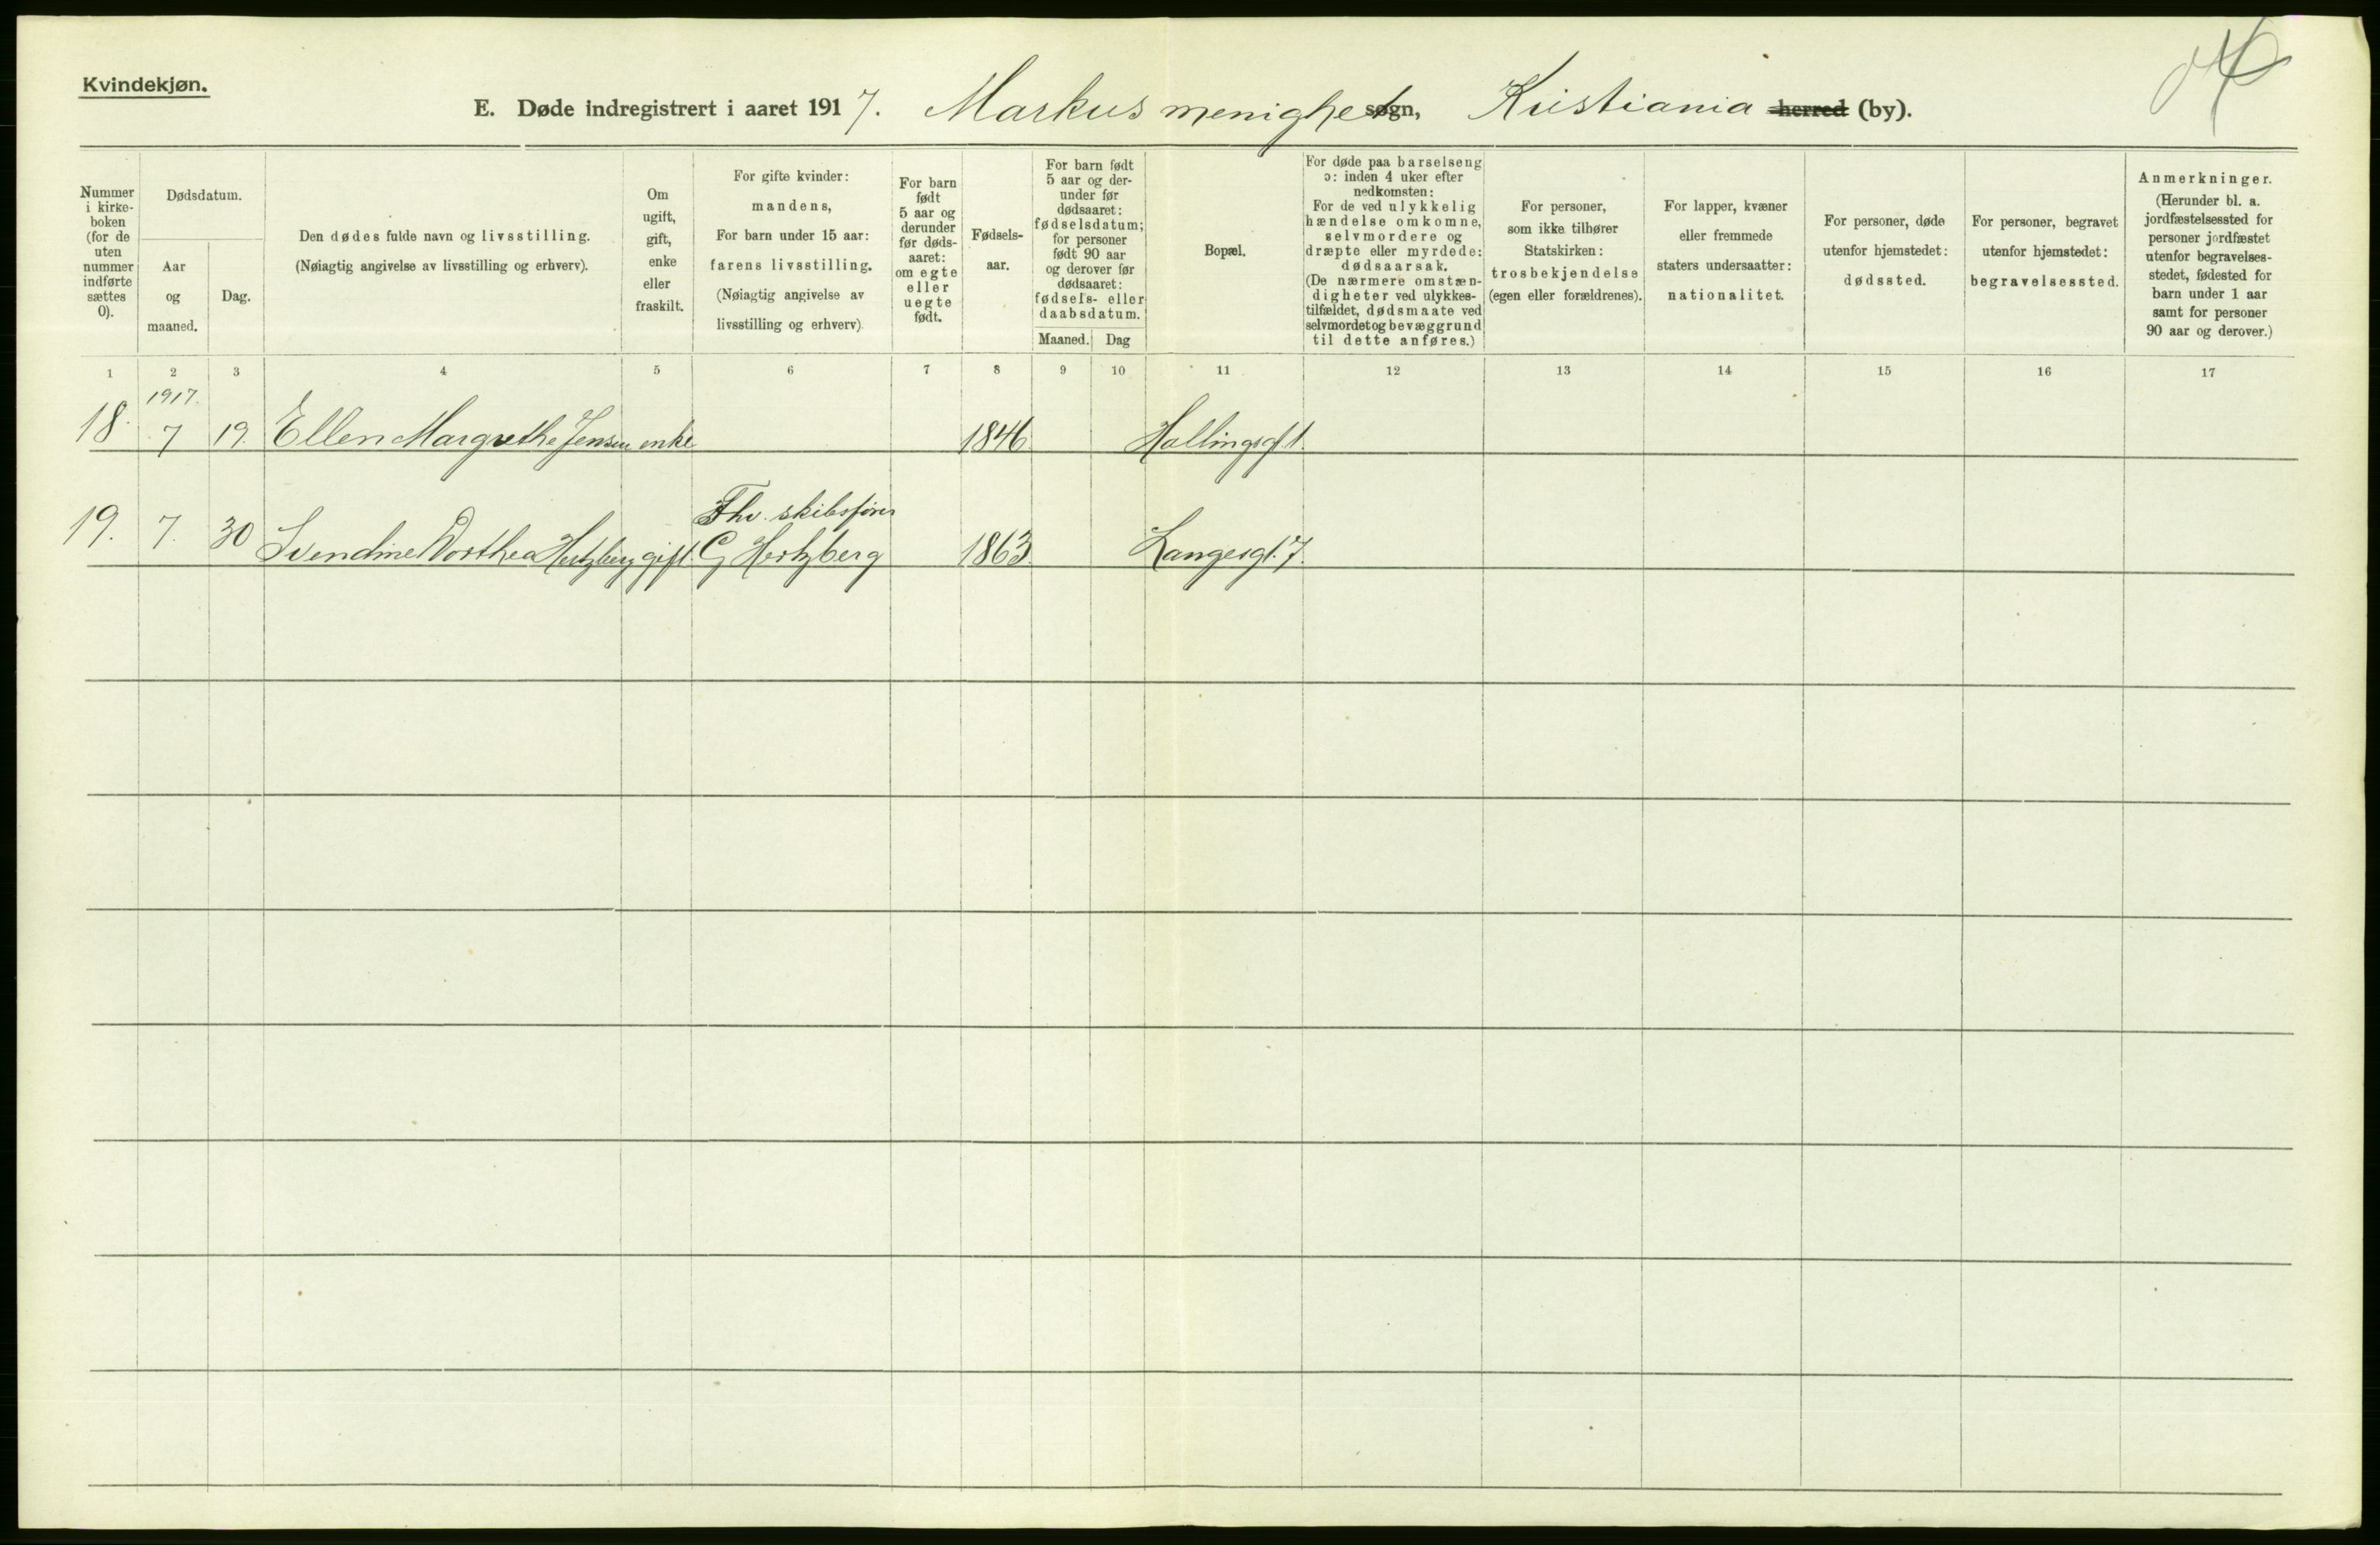 Kvindekjøn.
E. Døde indregistrert i aaret 1917. Markus menighet søgn, Kristiania herred (by).
Nummer i kirke-boken (for de uten nummer indførte sættes 0).
Dødsdatum.
Aar og maaned.
Dag.
Den dødes fulde navn og livsstilling.
(Nøiagtig angivelse av livsstilling og erhverv).
Om ugift, gift, enke eller fraskilt.
For gifte kvinder:
mandens,
For barn under 15 aar:
farens livsstilling.
(Nøiagtig angivelse av
livsstilling og erhverv)
For barn født 5 aar og derunder før døds-aaret: om egte eller uegte født.
Fødsels-
aar.
For barn født
5 aar og der-
under før
dødsaaret:
fødselsdatum;
for personer
født 90 aar
og derover før
dødsaaret:
fødsels- eller
daabsdatum.
Maaned. Dag
Bopæl.
For døde paa barselseng
ɔ: inden 4 uker efter
nedkomsten:
For de ved ulykkelig
hændelse omkomne,
selvmordere og
dræpte eller myrdede:
dødsaarsak.
(De nærmere omstæn-
digheter ved ulykkes-
tilfældet, dødsmaate ved
selvmordet og bevæggrund
til dette anføres.)
For personer,
som ikke tilhører
Statskirken:
trosbekjendelse
(egen eller forældrenes).
For lapper, kvæner
eller fremmede
staters undersaatter:
nationalitet.
For personer, døde
utenfor hjemstedet:
dødssted.
For personer, begravet
utenfor hjemstedet:
begravelsessted.
Anmerkninger.
(Herunder bl. a.
jordfæstelsessted for
personer jordfæstet
utenfor begravelses-
stedet, fødested for
barn under 1 aar
samt for personer
90 aar og derover.)
1 2 3 4 5 6 7 8 9 10 11 12 13 14 15 16 17
1917.
18. 7 19. Ellen Margrethe Jensen enke 1846 Hallingsgt 1.
Fhv. skibsfører
19. 7. 30 Svendine Dorthea Hertzberg gift. G Hertzberg 1863. Langesgt. 7.